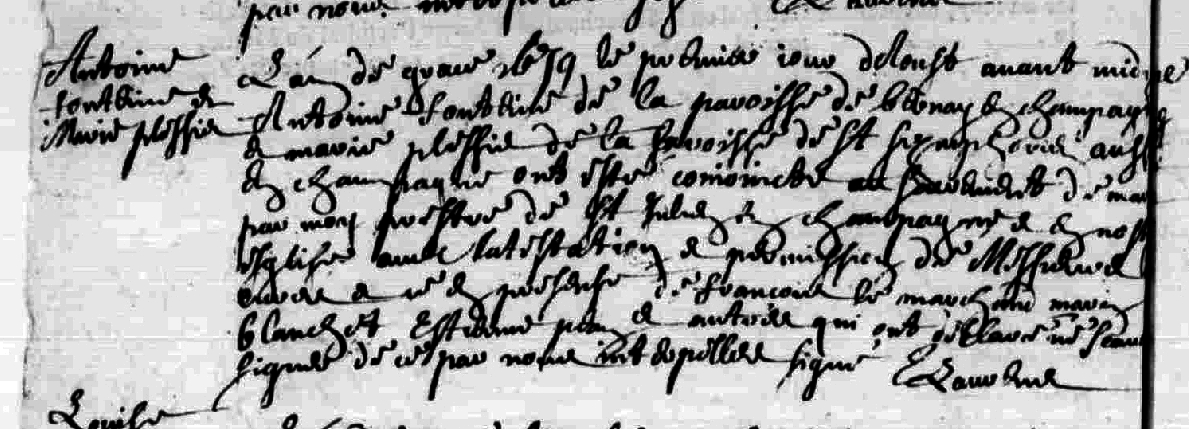 par nous
Antoine
fonteine &
Marie plessie
L'an de grace 1679 le premier iour d'Aoust avant midy
Antoine fonteine de la paroisse de bernay en champagne
& marie plessie de la paroisse de st simphorien aussi
en champagne ont esté conioincts au sacrement de mar
par moy prestre de st Julien en champagne & en nost
esglise avec l'atestation & permission de Messieurs
curés & ce en presence de francois le marchand marin
blanchet Estienne & autres qui ont declaré ne scavoir
signer de ce par nous interpellés signé
Louise